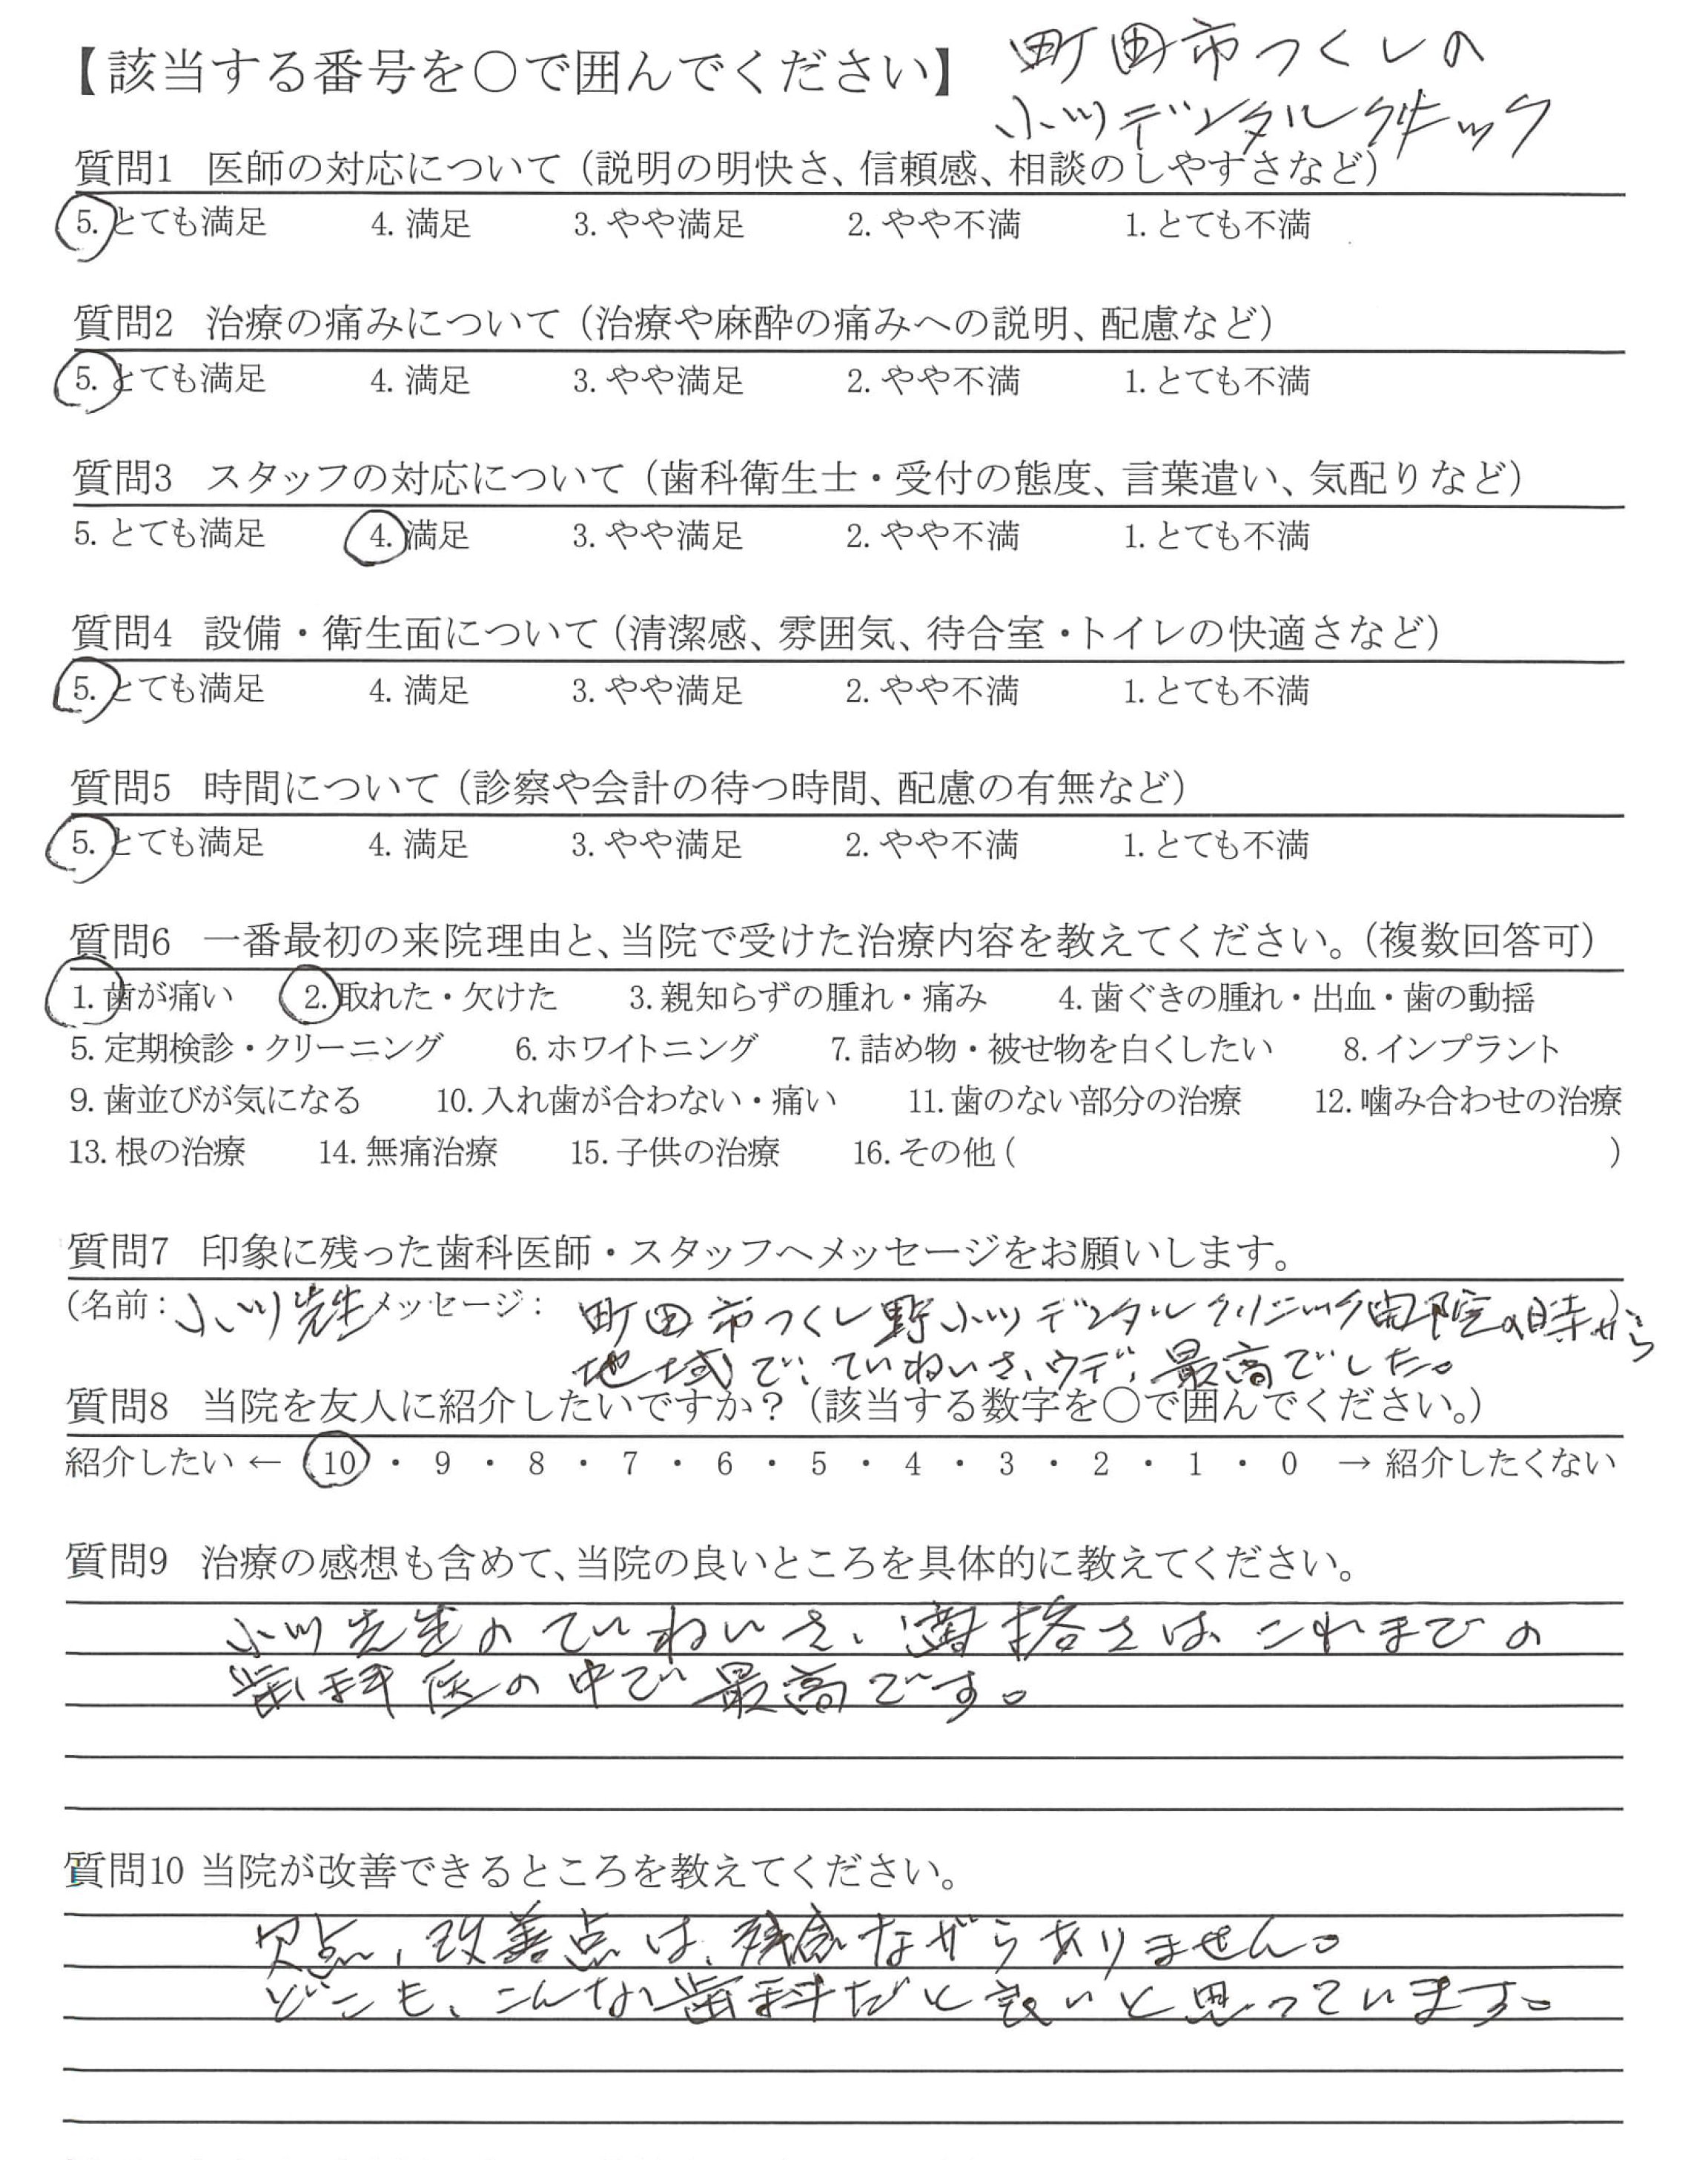 【該当する番号を〇で囲んでください】
町田市つくしの
小川デンタルクリニック
質問1 医師の対応について（説明の明快さ、信頼感、相談のしやすさなど）
5. とても満足 4. 満足 3. やや満足 2. やや不満 1. とても不満
質問2 治療の痛みについて（治療や麻酔の痛みへの説明、配慮など）
5. とても満足 4. 満足 3. やや満足 2. やや不満 1. とても不満
質問3 スタッフの対応について（歯科衛生士・受付の態度、言葉遣い、気配りなど）
5. とても満足 4. 満足 3. やや満足 2. やや不満 1. とても不満
質問4 設備・衛生面について（清潔感、雰囲気、待合室・トイレの快適さなど）
5. とても満足 4. 満足 3. やや満足 2. やや不満 1. とても不満
質問5 時間について（診察や会計の待つ時間、配慮の有無など）
5. とても満足 4. 満足 3. やや満足 2. やや不満 1. とても不満
質問6 一番最初の来院理由と、当院で受けた治療内容を教えてください。（複数回答可）
1. 歯が痛い 2. 取れた・欠けた 3. 親知らずの腫れ・痛み 4. 歯ぐきの腫れ・出血・歯の動揺
5. 定期検診・クリーニング 6. ホワイトニング 7. 詰め物・被せ物を白くしたい 8. インプラント
9. 歯並びが気になる 10. 入れ歯が合わない・痛い 11. 歯のない部分の治療 12. 噛み合わせの治療
13. 根の治療 14. 無痛治療 15. 子供の治療 16. その他（ ）
質問7 印象に残った歯科医師・スタッフへメッセージをお願いします。
（名前：小川先生 メッセージ： 町田市つくし野小川デンタルクリニック開院の時から）
地域で、ていねいさ、ウデ、最高でした。
質問8 当院を友人に紹介したいですか？（該当する数字を〇で囲んでください。）
紹介したい ← 10 ・ 9 ・ 8 ・ 7 ・ 6 ・ 5 ・ 4 ・ 3 ・ 2 ・ 1 ・ 0 → 紹介したくない
質問9 治療の感想も含めて、当院の良いところを具体的に教えてください。
小川先生のていねいさ、さは、これまでの
歯科医の中で最高です。
質問10 当院が改善できるところを教えてください。
欠点、改善点は、残念ながらありません。
どこも、こんな歯科だと良いと思っています。